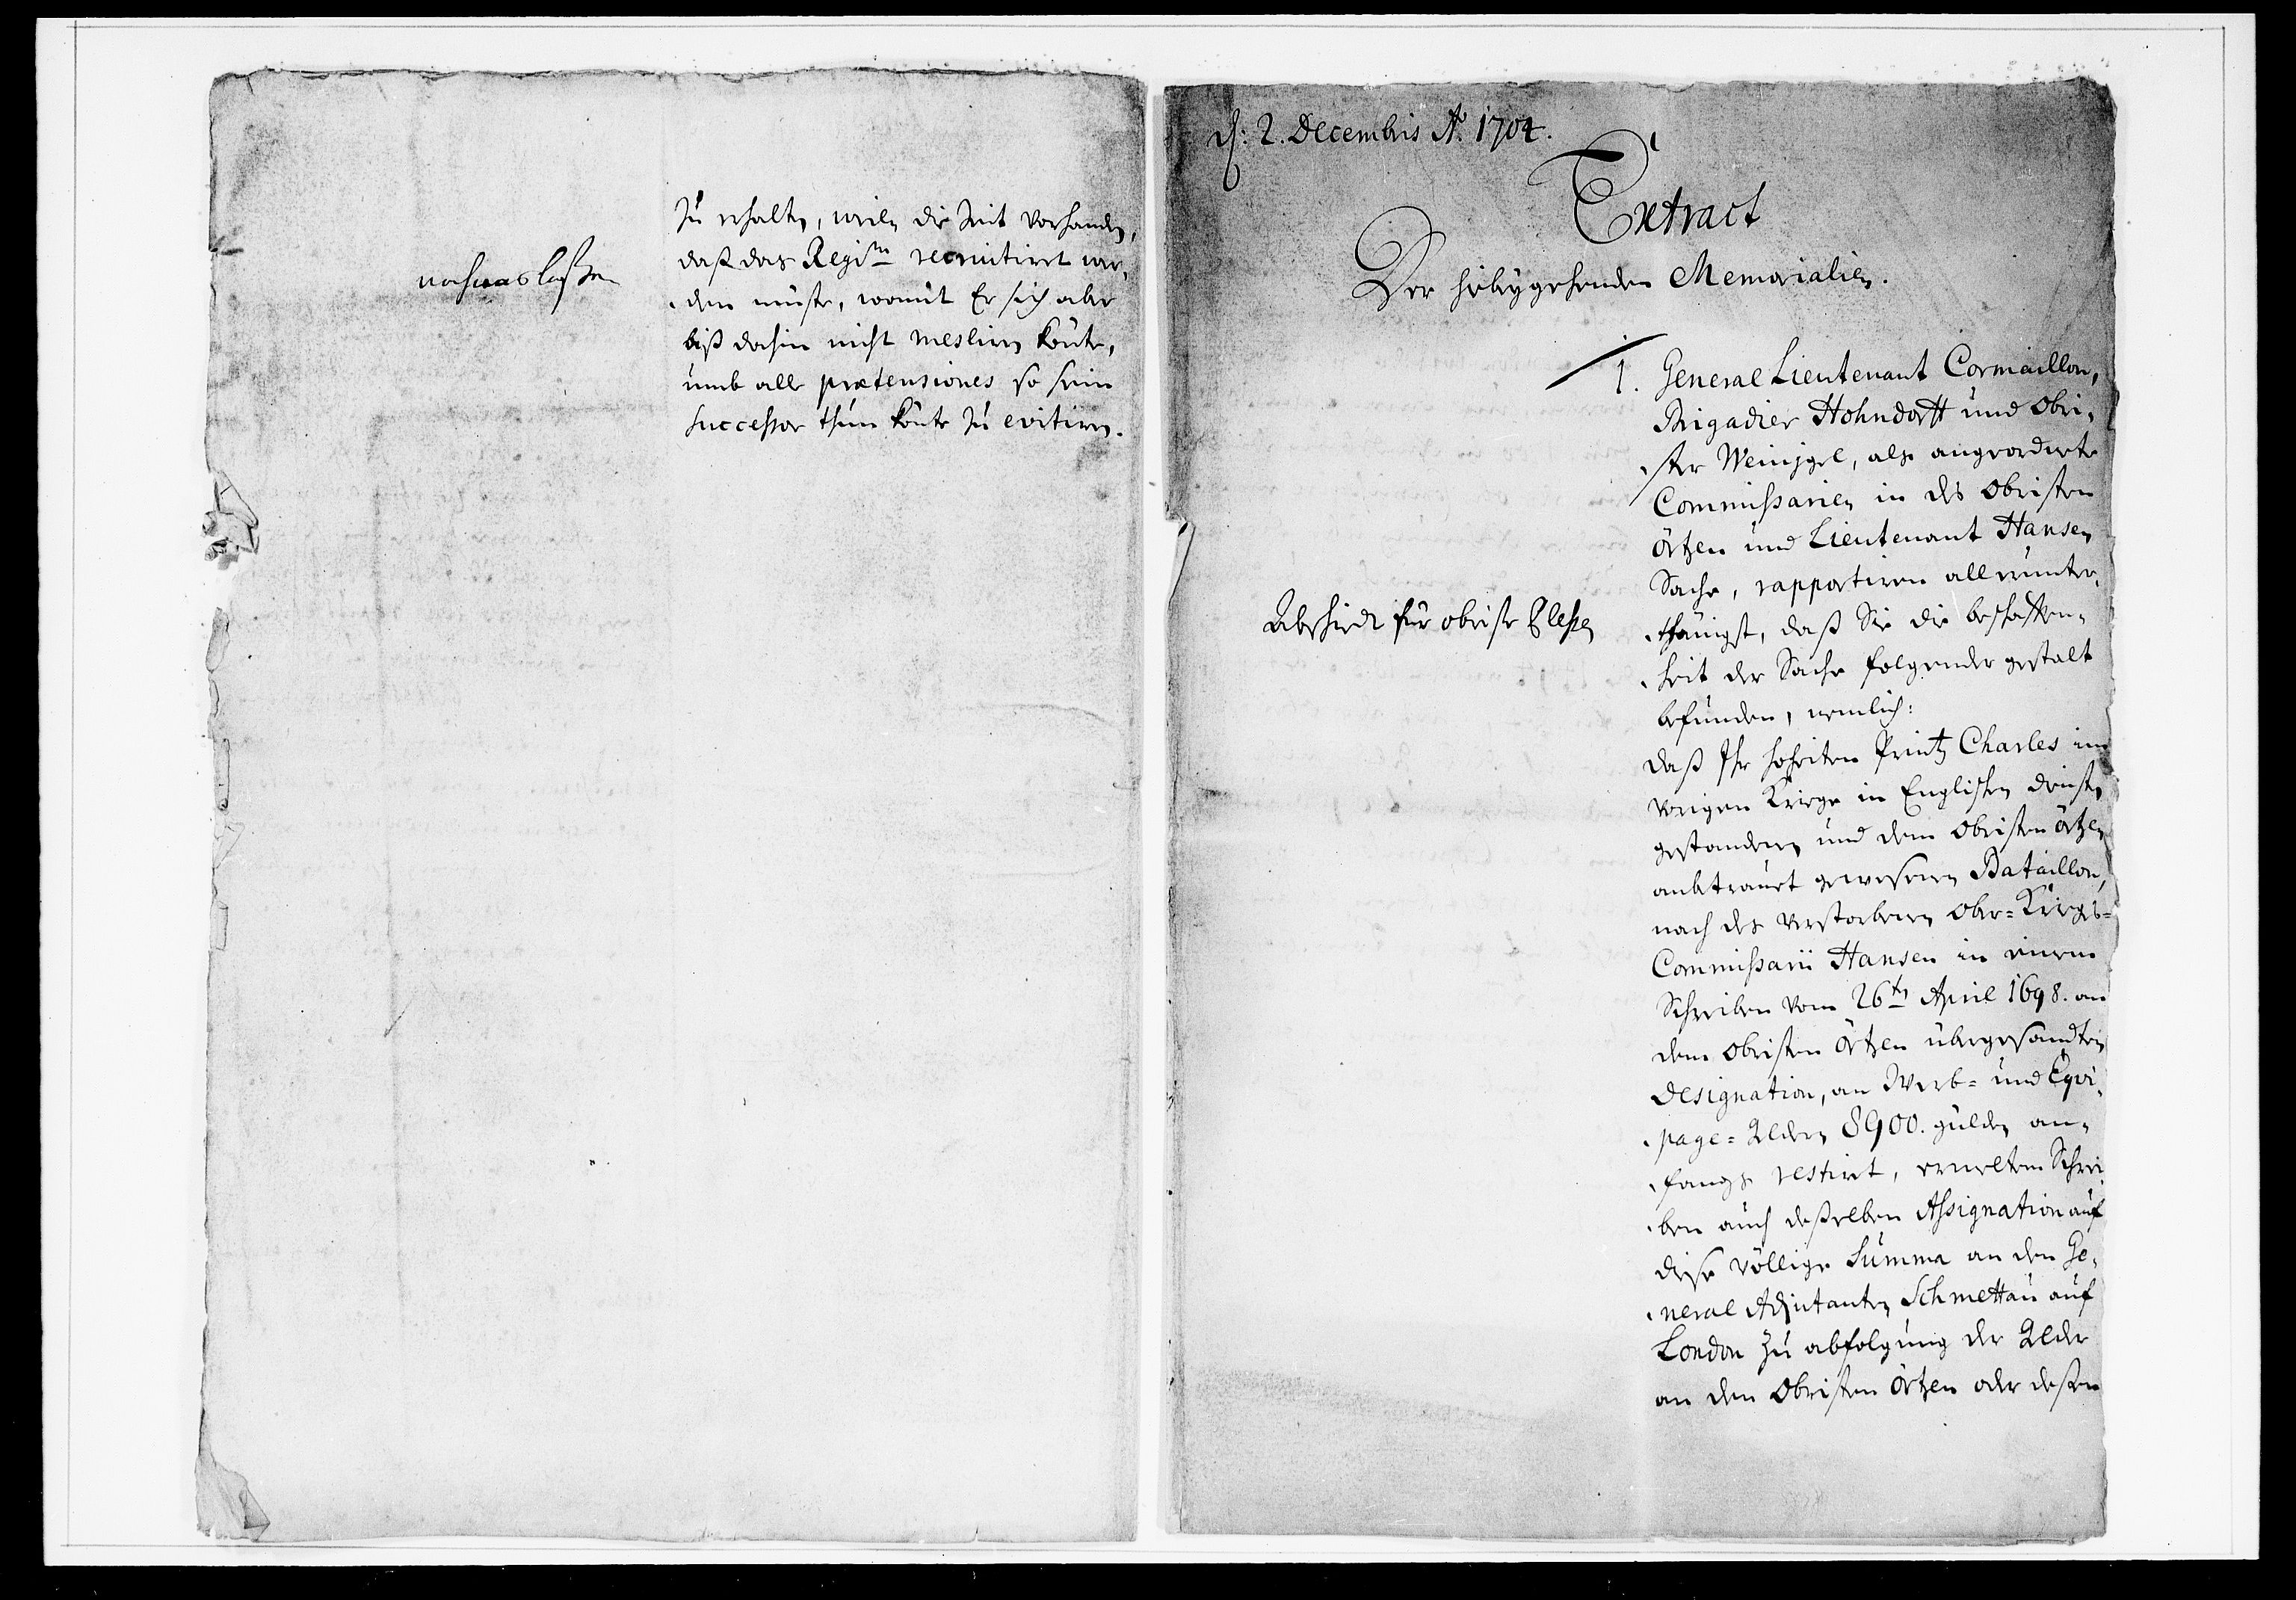 zu erhalten, weilen die Zeit vorhanden,
daß das Regim. recruitiret wer-
den müste, womit Er sich aber
biß dahin nicht mesliren könte,
umb alle prætensiones so sein
Successor thun könte zu evitiren.
noch was laßen
d: 2. Decembris Ao. 1704.
Extract
Der hiebeygehenden Memorialien.
1. General Lieutenant Cormaillon,
Brigadier Hohndorff und Obri-
ster Weinjgel, alß angeordnete
Commissarien in des Obristen
Örtzen und Lieutenant Hansen
Sache, rapportiren allerunter-
thänigst, daß Sie die beschaffen-
heit der Sache folgender gestalt
befunden, nemlich:
Abschiedt für obriste Plessen
daß Ihr Hoheiten Printz Charles im
vorigen Kriege in Englischen diensten
gestandenen und dem Obristen Örtzen
anbetrauet gewesenen Bataillon,
nach des verstorbenen Ober-Kriegs-
Commissarii Hansen in einem
Schreiben vom 26ten April 1698. an
dem Obristen Örtzen übergesandten
Designation, an Werb- und Eqvi-
page-Gelder 8900. gülden an-
fangs restiret, ermeltem Schrei-
ben auch deßelben Assignation auf
diese völlige Summa an den Ge-
neral Adjutanten Schmettau auf
London zu abfolgung der Gelder
an den Obristen Örtzen oder deßen